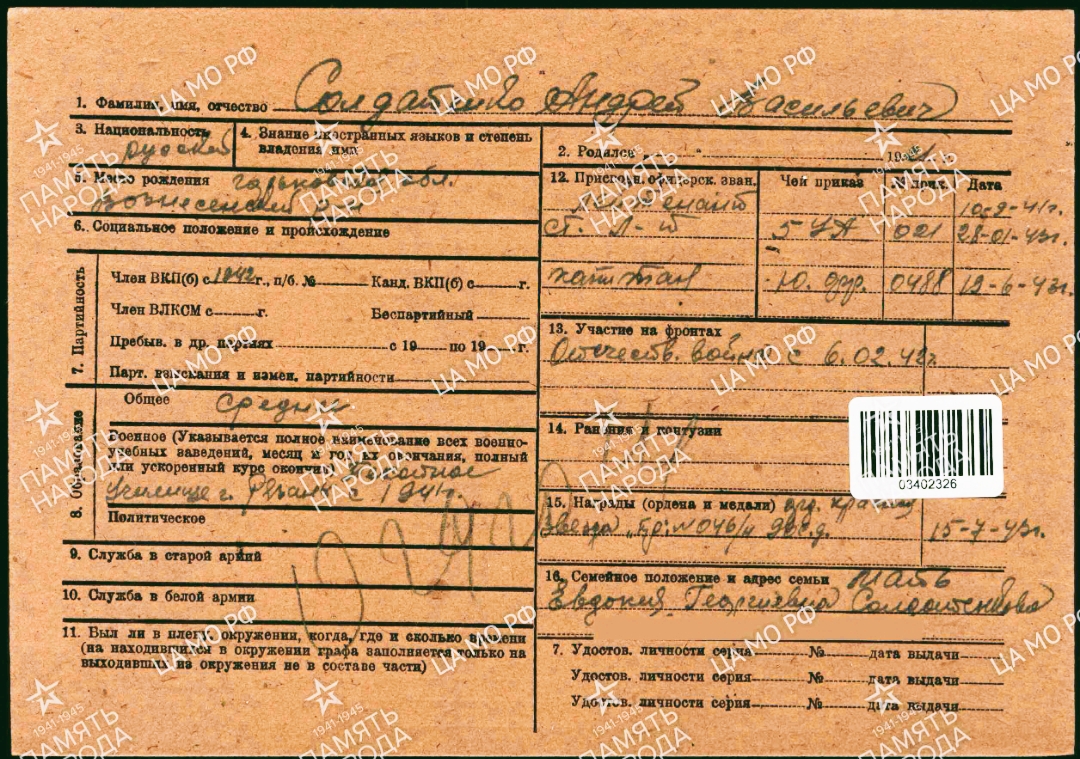 1. Фамилия, имя, отчество Солдатенко Андрей Васильевич
3. Национальность русский
4. Знание иностранных языков и степень владения ими
2. Родился " 19 г.
5. Место рождения Горьковская обл.
Вознесенский р-н
6. Социальное положение и происхождение
7. Партийность
Член ВКП(б) с 1942 г., п/б. № Канд. ВКП(б) с г.
Член ВЛКСМ с г. Беспартийный
Пребыв. в др. партиях с 19 по 19 г.
Парт. взыскания и измен. партийности
8. Образование
Общее средн.
Военное (Указывается полное наименование всех военно-
учебных заведений, месяц и год их окончания, полный
или ускоренный курс окончил) Пехотное
училище г. Рязань с 1941 г.
Политическое
9. Служба в старой армии
10. Служба в белой армии
11. Был ли в плену, окружении, когда, где и сколько времени
(на находившихся в окружении графа заполняется только на
выходивших из окружения не в составе части)
12. Присвоен. офицерск. зван. Чей приказ № прик. Дата
Лейтенант 10-9-41г.
ст. л-т 5 УА 021 28-01-43г.
капитан Ю. фр. 0488 12-6-43г.
13. Участие на фронтах
Отечеств. война с 6.02.42г.
14. Ранения и контузии
03402326
15. Награды (ордена и медали) орд. Красная
звезда пр. №046/н 15-7-43г.
16. Семейное положение и адрес семьи мать
Евдокия Георгиевна Солдатенкова
7. Удостов. личности серия № дата выдачи
Удостов. личности серия № дата выдачи
Удостов. личности серия № дата выдачи
ЦА МО РФ
1941-1945
ПАМЯТЬ
НАРОДА